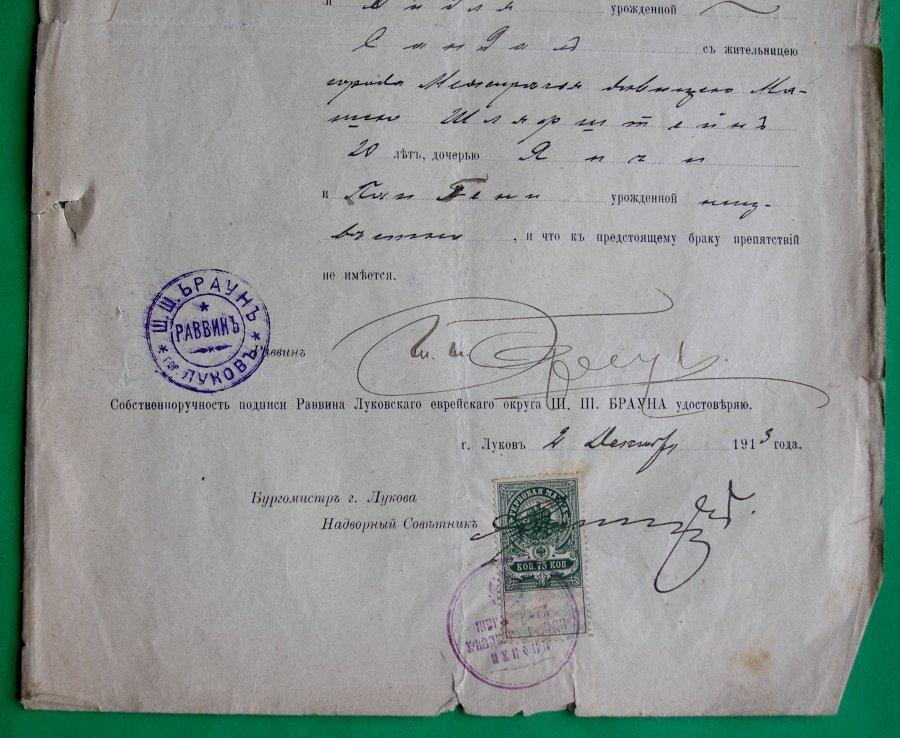 и урожденной
Сандал съ жительницею
города Межиречья дѣвицею Ма-
шею Шляфштейнъ
20 лѣтъ, дочерью Янчи
и урожденной неиз-
вѣстно, и что къ предстоящему браку препятствій
не имѣется.
Ш. Ш. БРАУНЪ
РАВВИНЪ
гор. ЛУКОВЪ
Раввинъ Ш. Ш. Браунъ
Собственноручность подписи Раввина Луковскаго еврейскаго округа Ш. Ш. БРАУНА удостовѣряю.
г. Луковъ 2 Декабря 1913 года.
Бургомистръ г. Лукова
Надворный Совѣтникъ
ГЕРБОВАЯ МАРКА
КОП. 75 КОП